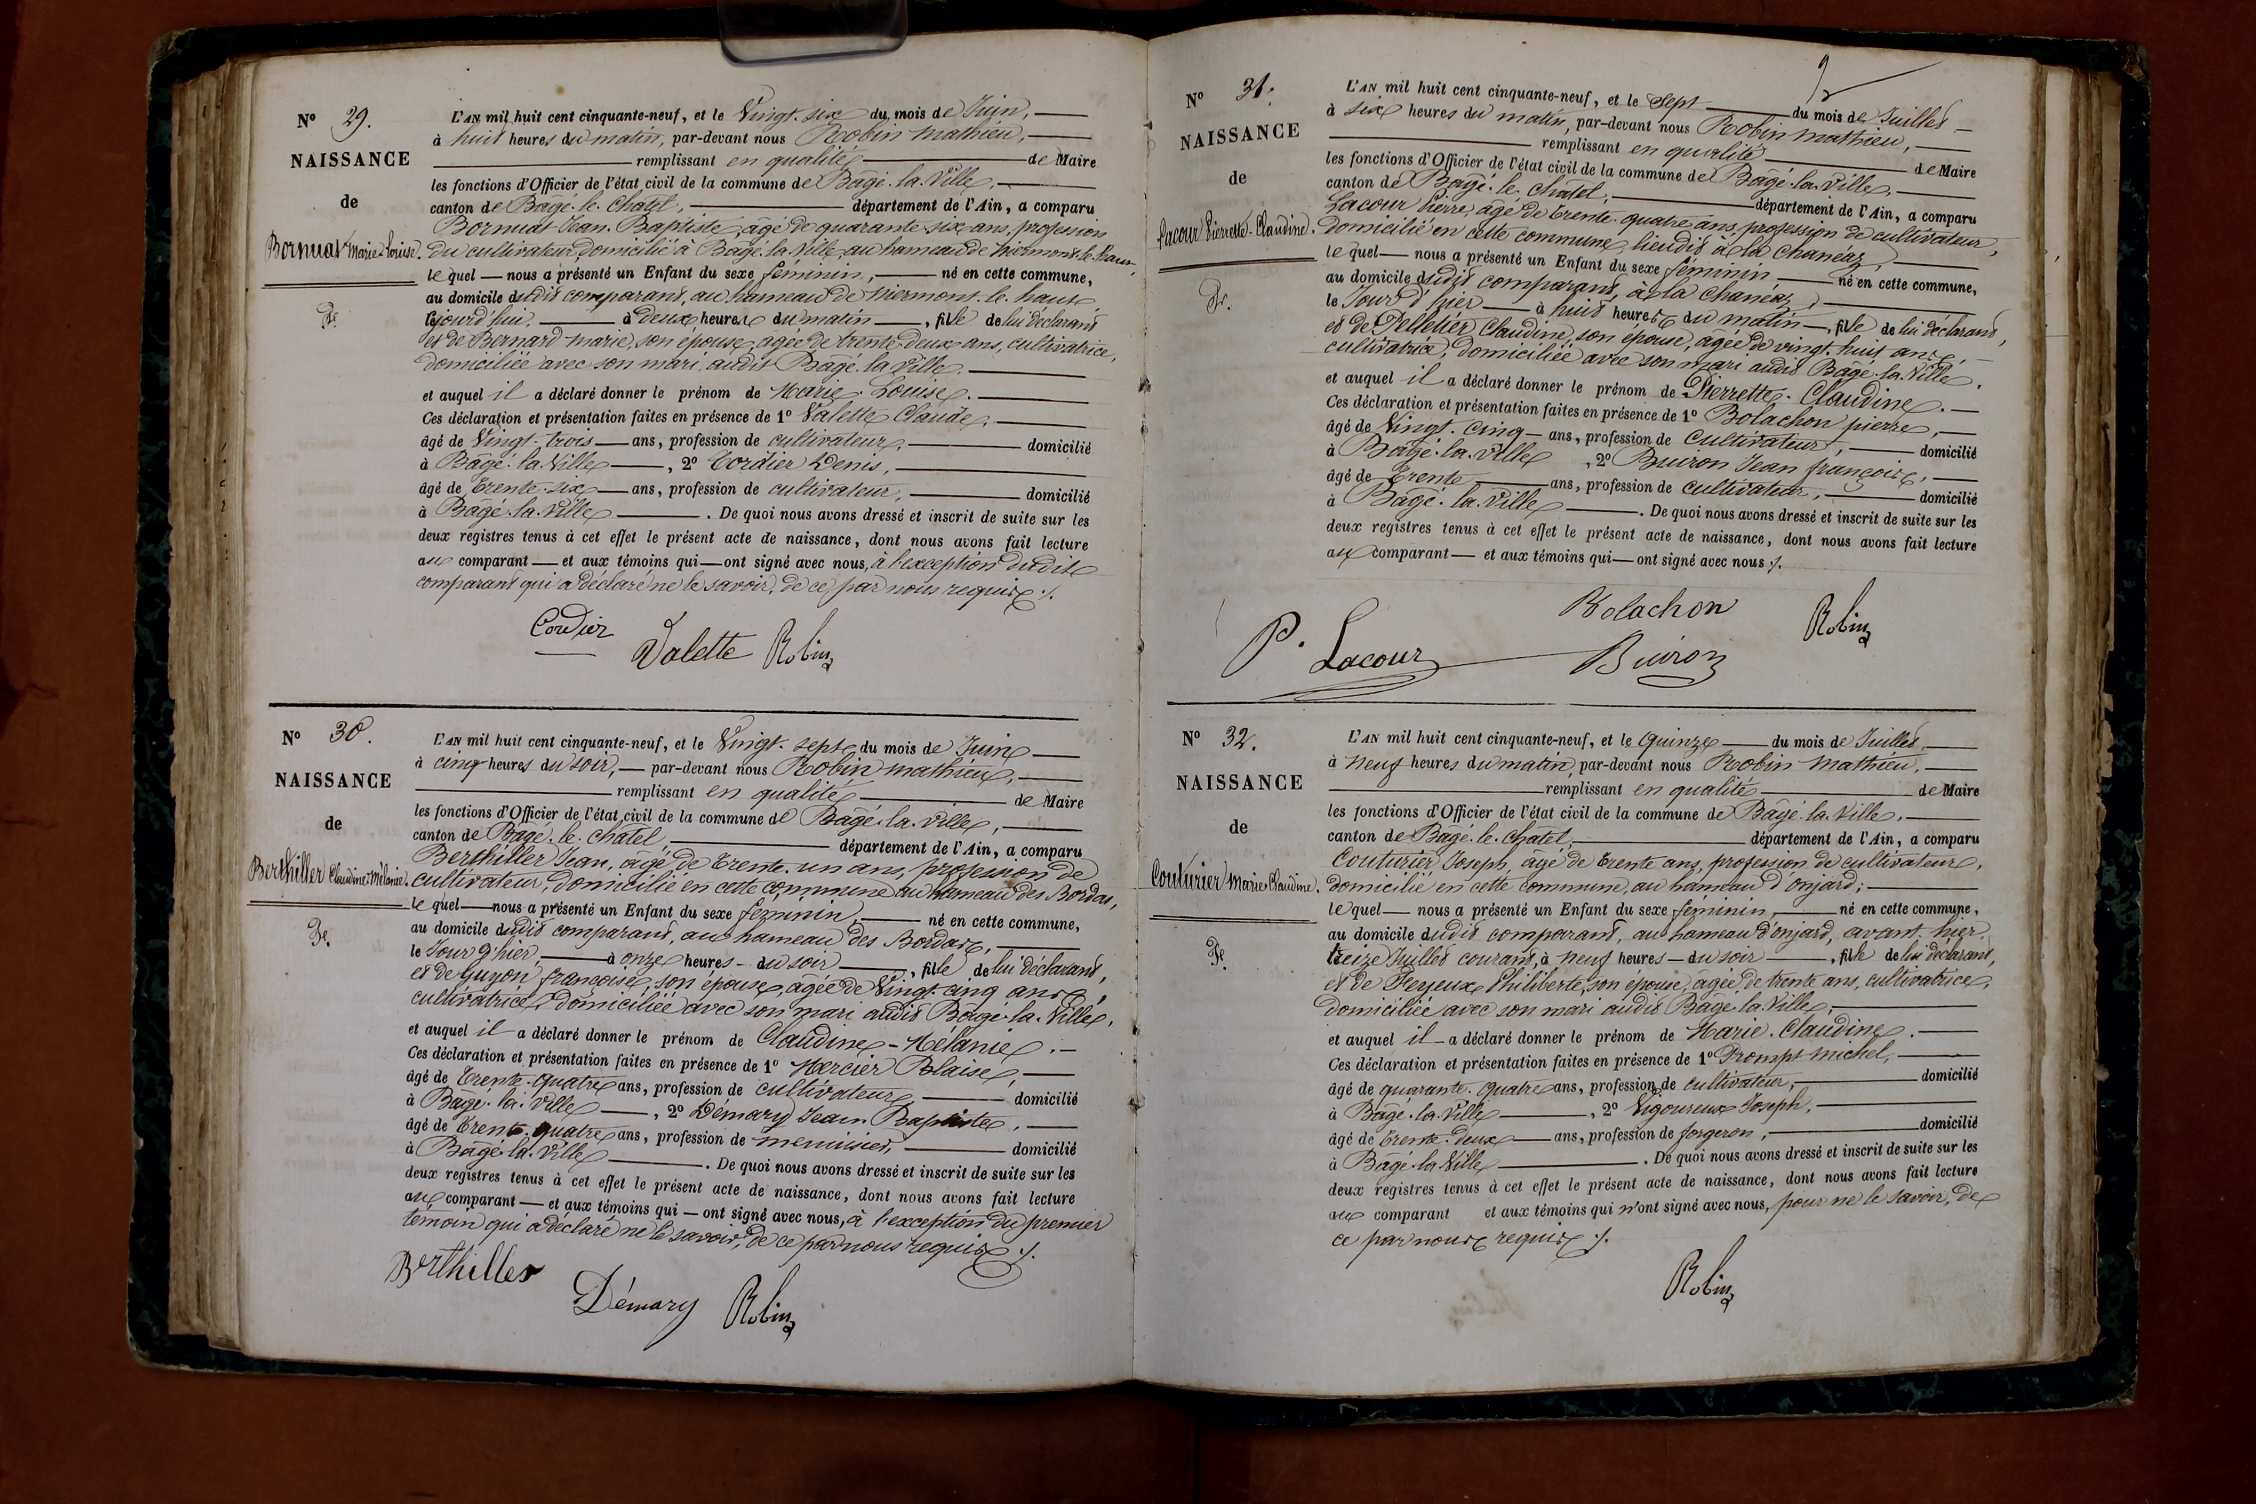 N° 29.
NAISSANCE
de
Bornuat Marie Louise.
Fe.
L'AN mil huit cent cinquante-neuf, et le Vingt-six du mois de Juin,
à huit heures du matin, par-devant nous Robin Mathieu,
remplissant en qualité de Maire
les fonctions d'Officier de l'état civil de la commune de Bâgé-la-Ville,
canton de Bâgé-le-Chatel, département de l'Ain, a comparu
Bornuat Jean-Baptiste, âgé de quarante-six ans, profession
du cultivateur domicilié à Bâgé-la-Ville au hameau de
le quel nous a présenté un Enfant du sexe féminin, né en cette commune,
au domicile dudit comparant, au hameau de
jourd'hui, à deux heures du matin, fille de lui déclarant
et de Bernard Marie, son épouse, agée de trente-deux ans, cultivatrice,
domiciliée avec son mari audit Bâgé-la-Ville.
et auquel il a déclaré donner le prénom de Marie-Louise.
Ces déclaration et présentation faites en présence de 1° Valette Claude,
âgé de Vingt-trois ans, profession de cultivateur, domicilié
à Bâgé-la-Ville, 2° Cordier Denis,
âgé de Trente-six ans, profession de cultivateur, domicilié
à Bâgé-la-Ville. De quoi nous avons dressé et inscrit de suite sur les
deux registres tenus à cet effet le présent acte de naissance, dont nous avons fait lecture
au comparant et aux témoins qui ont signé avec nous, à l'exception dudit
comparant qui a déclaré ne le savoir, de ce par nous requis ./.
Cordier
Valette Robin
N° 30.
NAISSANCE
de
Berthiller Claudine Mélanie.
Fe.
L'AN mil huit cent cinquante-neuf, et le Vingt-sept du mois de Juin
à cinq heures du soir, par-devant nous Robin Mathieu,
remplissant en qualité de Maire
les fonctions d'Officier de l'état civil de la commune de Bâgé-la-Ville,
canton de Bâgé-le-Chatel département de l'Ain, a comparu
Berthiller Jean, âgé de Trente-un ans, profession de
cultivateur, domicilié en cette commune au hameau des Bordas,
le quel nous a présenté un Enfant du sexe féminin, né en cette commune,
au domicile dudit comparant, au hameau des Bordas,
le Jour d'hier, à onze heures du soir, fille de lui déclarant,
et de Guyon françoise, son épouse, agée de Vingt-cinq ans,
cultivatrice, domiciliée avec son mari audit Bâgé-la-Ville,
et auquel il a déclaré donner le prénom de Claudine-Mélanie.
Ces déclaration et présentation faites en présence de 1° Mercier Blaise,
âgé de Trente-quatre ans, profession de cultivateur, domicilié
à Bâgé-la-Ville, 2° Démary Jean-Baptiste,
âgé de Trente-quatre ans, profession de menuisier, domicilié
à Bâgé-la-Ville. De quoi nous avons dressé et inscrit de suite sur les
deux registres tenus à cet effet le présent acte de naissance, dont nous avons fait lecture
au comparant et aux témoins qui ont signé avec nous, à l'exception du premier
témoin qui a déclaré ne le savoir, de ce par nous requis ./.
Berthiller
Démary Robin
N° 31.
NAISSANCE
de
Lacour Pierrette-Claudine.
Fe.
L'AN mil huit cent cinquante-neuf, et le Sept du mois de Juillet
à six heures du matin, par-devant nous Robin Mathieu,
remplissant en qualité de Maire
les fonctions d'Officier de l'état civil de la commune de Bâgé-la-Ville,
canton de Bâgé-le-Chatel, département de l'Ain, a comparu
Lacour Pierre, âgé de Trente-quatre ans, profession de cultivateur,
domicilié en cette commune, lieudit à la Chanéaz,
le quel nous a présenté un Enfant du sexe féminin né en cette commune,
au domicile dudit comparant, à la Chanéaz,
le Jour d'hier à huit heures du matin, fille de lui déclarant,
et de Pelletier Claudine, son épouse, âgée de vingt-huit ans,
cultivatrice, domiciliée avec son mari audit Bâgé-la-Ville.
et auquel il a déclaré donner le prénom de Pierrette-Claudine.
Ces déclaration et présentation faites en présence de 1° Bolachon pierre,
âgé de Vingt-cinq ans, profession de Cultivateur, domicilié
à Bâgé-la-Ville, 2° Buiron Jean françois,
âgé de Trente ans, profession de Cultivateur, domicilié
à Bâgé-la-Ville. De quoi nous avons dressé et inscrit de suite sur les
deux registres tenus à cet effet le présent acte de naissance, dont nous avons fait lecture
au comparant et aux témoins qui ont signé avec nous ./.
Bolachon Robin
P. Lacour Buiron
N° 32.
NAISSANCE
de
Couturier Marie Claudine.
Fe.
L'AN mil huit cent cinquante-neuf, et le Quinze du mois de Juillet,
à Neuf heures du matin, par-devant nous Robin Mathieu,
remplissant en qualité de Maire
les fonctions d'Officier de l'état civil de la commune de Bâgé-la-Ville,
canton de Bagé-le-Chatel, département de l'Ain, a comparu
Couturier Joseph, âgé de Trente ans, profession de cultivateur,
domicilié en cette commune, au hameau d'Onjard,
le quel nous a présenté un Enfant du sexe féminin, né en cette commune,
au domicile dudit comparant, au hameau d'Onjard, avant-hier
treize Juillet courant, à neuf heures du soir, fille de lui déclarant,
et de Feyeux Philiberte, son épouse, âgée de trente ans, cultivatrice,
domiciliée avec son mari audit Bâgé-la-Ville,
et auquel il a déclaré donner le prénom de Marie-Claudine.
Ces déclaration et présentation faites en présence de 1° Prompt Michel,
âgé de quarante-quatre ans, profession de cultivateur, domicilié
à Bâgé-la-Ville, 2° Vigoureux Joseph,
âgé de Trente-deux ans, profession de forgeron, domicilié
à Bâgé-la-Ville. De quoi nous avons dressé et inscrit de suite sur les
deux registres tenus à cet effet le présent acte de naissance, dont nous avons fait lecture
au comparant et aux témoins qui n'ont signé avec nous, pour ne le savoir, de
ce par nous requis ./.
Robin